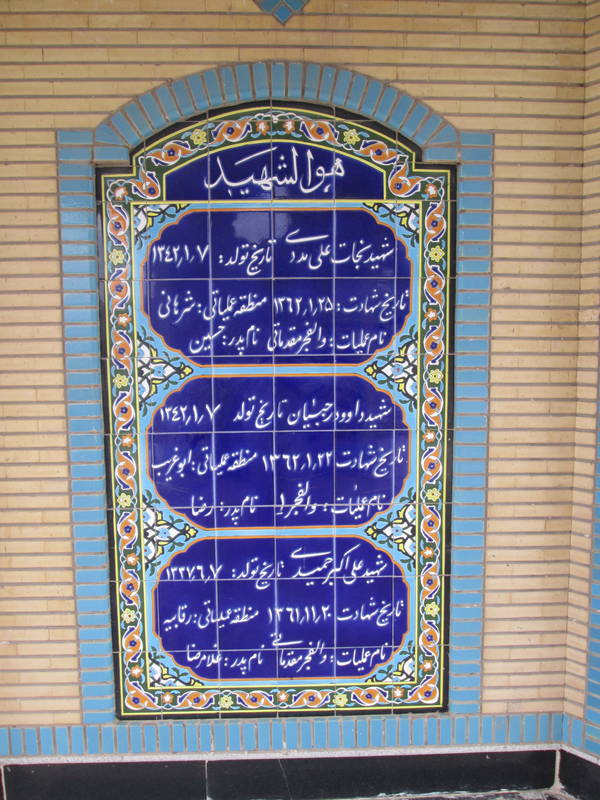 هوالشهید
شهید نجات علی مددی تاریخ تولد: ۱۳۴۲٫۱٫۷
تاریخ شهادت: ۱۳۶۲٫۱٫۲۵ منطقه عملیاتی: شرهانی
نام عملیات: والفجر مقدماتی نام پدر: حسین
شهید داوود رجبیان تاریخ تولد ۱۳۴۲٫۱٫۷
تاریخ شهادت ۱۳۶۲٫۱٫۲۲ منطقه عملیاتی: ابوغریب
نام عملیات: والفجر ۱ نام پدر: رضا
شهید علی اکبر حمیدی تاریخ تولد: ۱۳۳۷۶٫۷
تاریخ شهادت ۱۳۶۱٫۱۱٫۲۰ منطقه عملیاتی: رقابیه
نام عملیات: والفجر مقدماتی نام پدر: غلامرضا